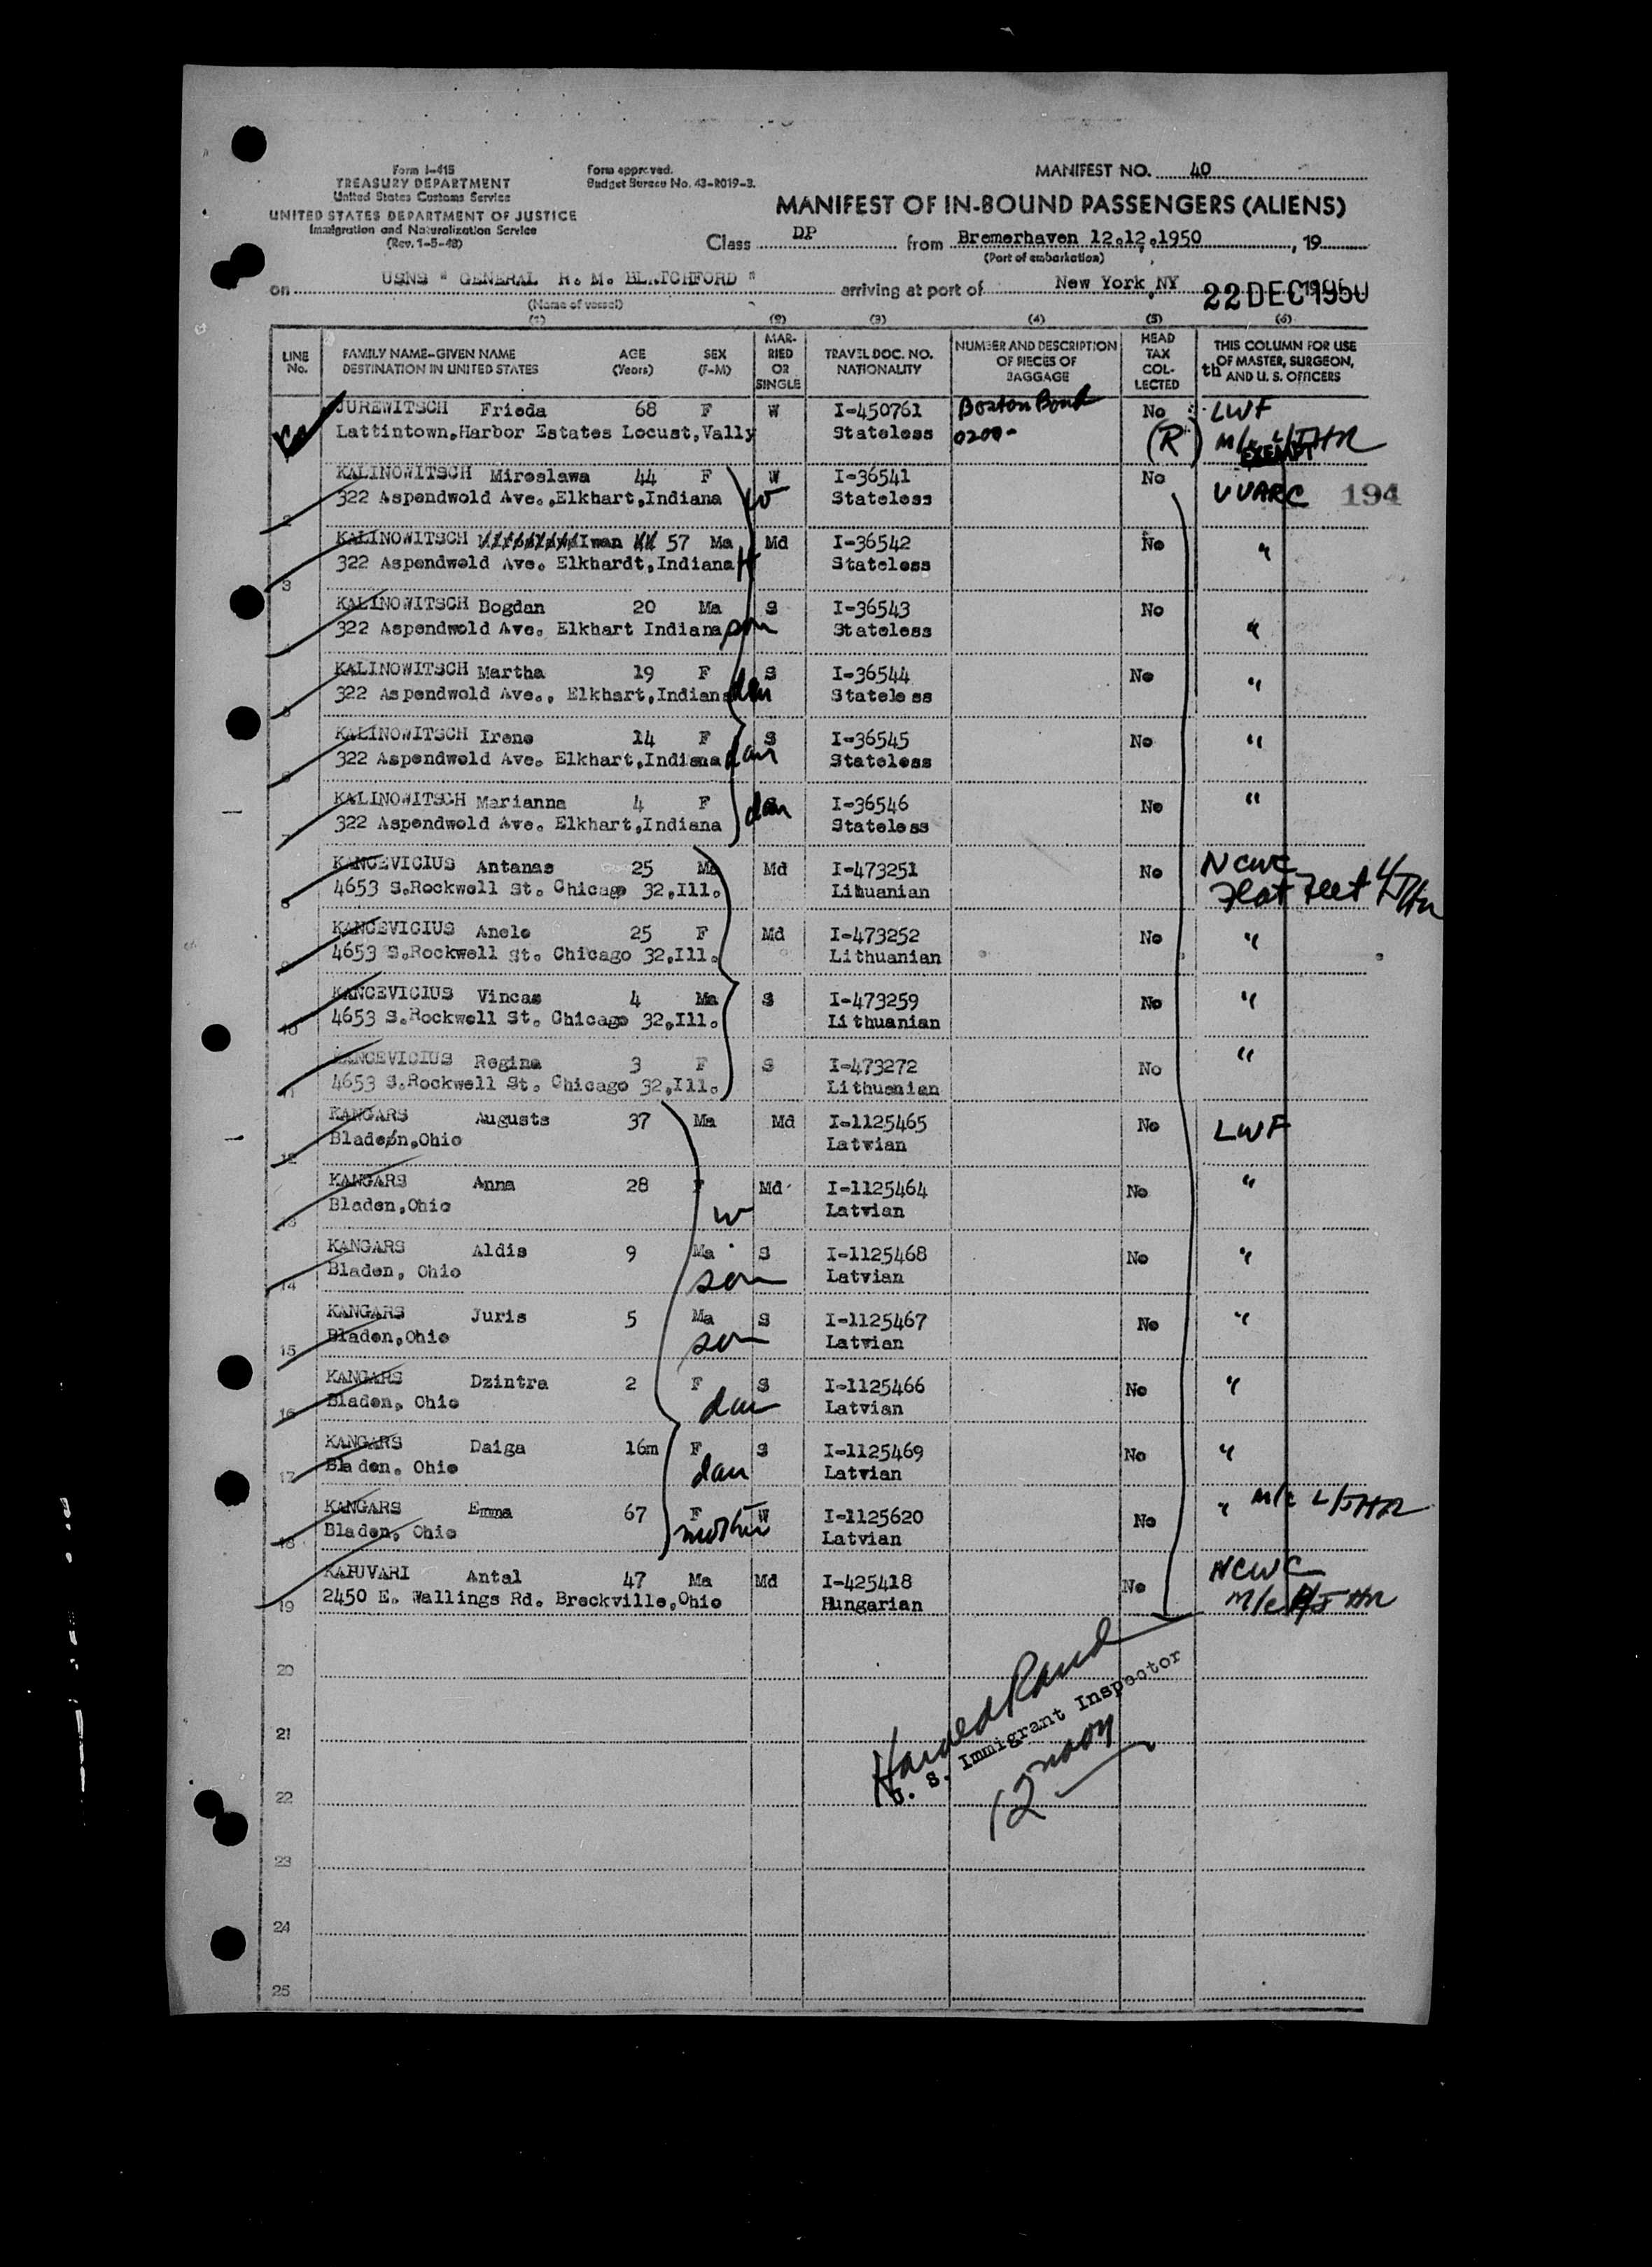 Form I-415
TREASURY DEPARTMENT
United States Customs Service
UNITED STATES DEPARTMENT OF JUSTICE
Immigration and Naturalization Service
(Rev. 1-5-48)
Form approved.
Budget Bureau No. 43-R019-3.
MANIFEST NO. 40
MANIFEST OF IN-BOUND PASSENGERS (ALIENS)
Class DP from Bremerhaven 12.12.1950, 19
(Port of embarkation)
on USNS " GENERAL R. M. BLATCHFORD " arriving at port of New York, NY 22 DEC 1950
(Name of vessel)
(1) (2) (3) (4) (5) (6)
LINE No. FAMILY NAME-GIVEN NAME DESTINATION IN UNITED STATES AGE (Years) SEX (F-M) MARRIED OR SINGLE TRAVEL DOC. NO. NATIONALITY NUMBER AND DESCRIPTION OF PIECES OF BAGGAGE HEAD TAX COLLECTED THIS COLUMN FOR USE OF MASTER, SURGEON, th AND U. S. OFFICERS
JUREWITSCH Frieda 68 F W I-450761 Boston Bond No LWF
Lattintown,Harbor Estates Locust,Vally Stateless 0200- (R) M/c L/JHR
EXEMPT
KALINOWITSCH Miroslawa 44 F W I-36541 No UUARC 194
2 322 Aspendwold Ave.,Elkhart,Indiana W Stateless
KALINOWITSCH Iwan 57 Ma Md I-36542 No "
3 322 Aspendwold Ave. Elkhardt,Indiana H Stateless
KALINOWITSCH Bogdan 20 Ma S I-36543 No "
4 322 Aspendwold Ave. Elkhart Indiana son Stateless
KALINOWITSCH Martha 19 F S I-36544 No "
5 322 Aspendwold Ave., Elkhart,Indiana dau Stateless
KALINOWITSCH Irene 14 F S I-36545 No "
6 322 Aspendwold Ave. Elkhart,Indiana dau Stateless
KALINOWITSCH Marianna 4 F dau I-36546 No "
7 322 Aspendwold Ave. Elkhart,Indiana Stateless
KANCEVICIUS Antanas 25 Ma Md I-473251 No NCWC
8 4653 S.Rockwell St. Chicago 32,Ill. Lithuanian Flat Feet
KANCEVICIUS Anele 25 F Md I-473252 No "
9 4653 S.Rockwell St. Chicago 32,Ill. Lithuanian
KANCEVICIUS Vincas 4 Ma S I-473259 No "
10 4653 S.Rockwell St. Chicago 32,Ill. Lithuanian
KANCEVICIUS Regina 3 F S I-473272 No "
11 4653 S.Rockwell St. Chicago 32,Ill. Lithuanian
KANGARS Augusts 37 Ma Md I-1125465 No LWF
12 Bladen,Ohio Latvian
KANGARS Anna 28 F Md I-1125464 No "
13 Bladen,Ohio W Latvian
KANGARS Aldis 9 Ma S I-1125468 No "
14 Bladen, Ohio son Latvian
KANGARS Juris 5 Ma S I-1125467 No "
15 Bladen,Ohio son Latvian
KANGARS Dzintra 2 F S I-1125466 No "
16 Bladen, Ohio dau Latvian
KANGARS Daiga 16m F S I-1125469 No "
17 Bladen. Ohio dau Latvian
KANGARS Emma 67 F W I-1125620 No " M/c L/JHR
18 Bladen, Ohio mother Latvian
KAPUVARI Antal 47 Ma Md I-425418 No NCWC
19 2450 E. Wallings Rd. Breckville,Ohio Hungarian
20
Harold Rand
U. S. Immigrant Inspector
12 noon
21
22
23
24
25